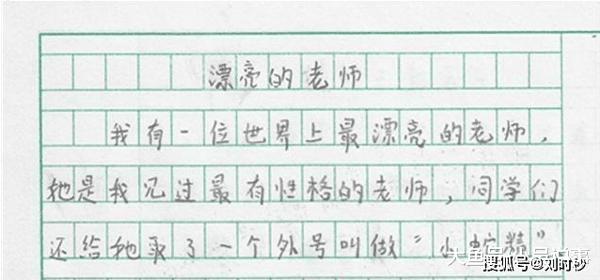 漂亮的老师
我有一位世界上最漂亮的老师，
她是我见过最有性格的老师，同学们
还给她取了一个外号叫做“小蛇精”
搜狐号@刘时秒